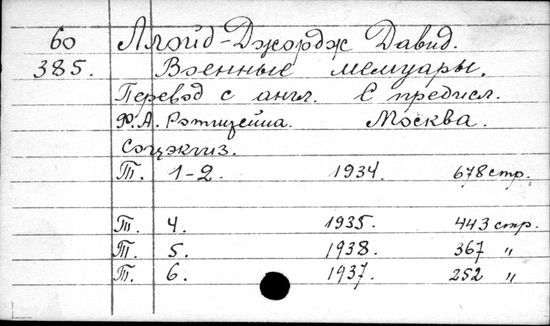 60 Ллойд-Джордж Давид.
385. Военные мемуары.
Перевод с англ. С предисл.
Ф.А. Ротштейна. Москва.
Соцэкгиз.
Т. 1-2. 1934. 678 стр.
Т. 4. 1935. 443 стр.
Т. 5. 1938. 367 "
Т. 6. 1937. 252 "